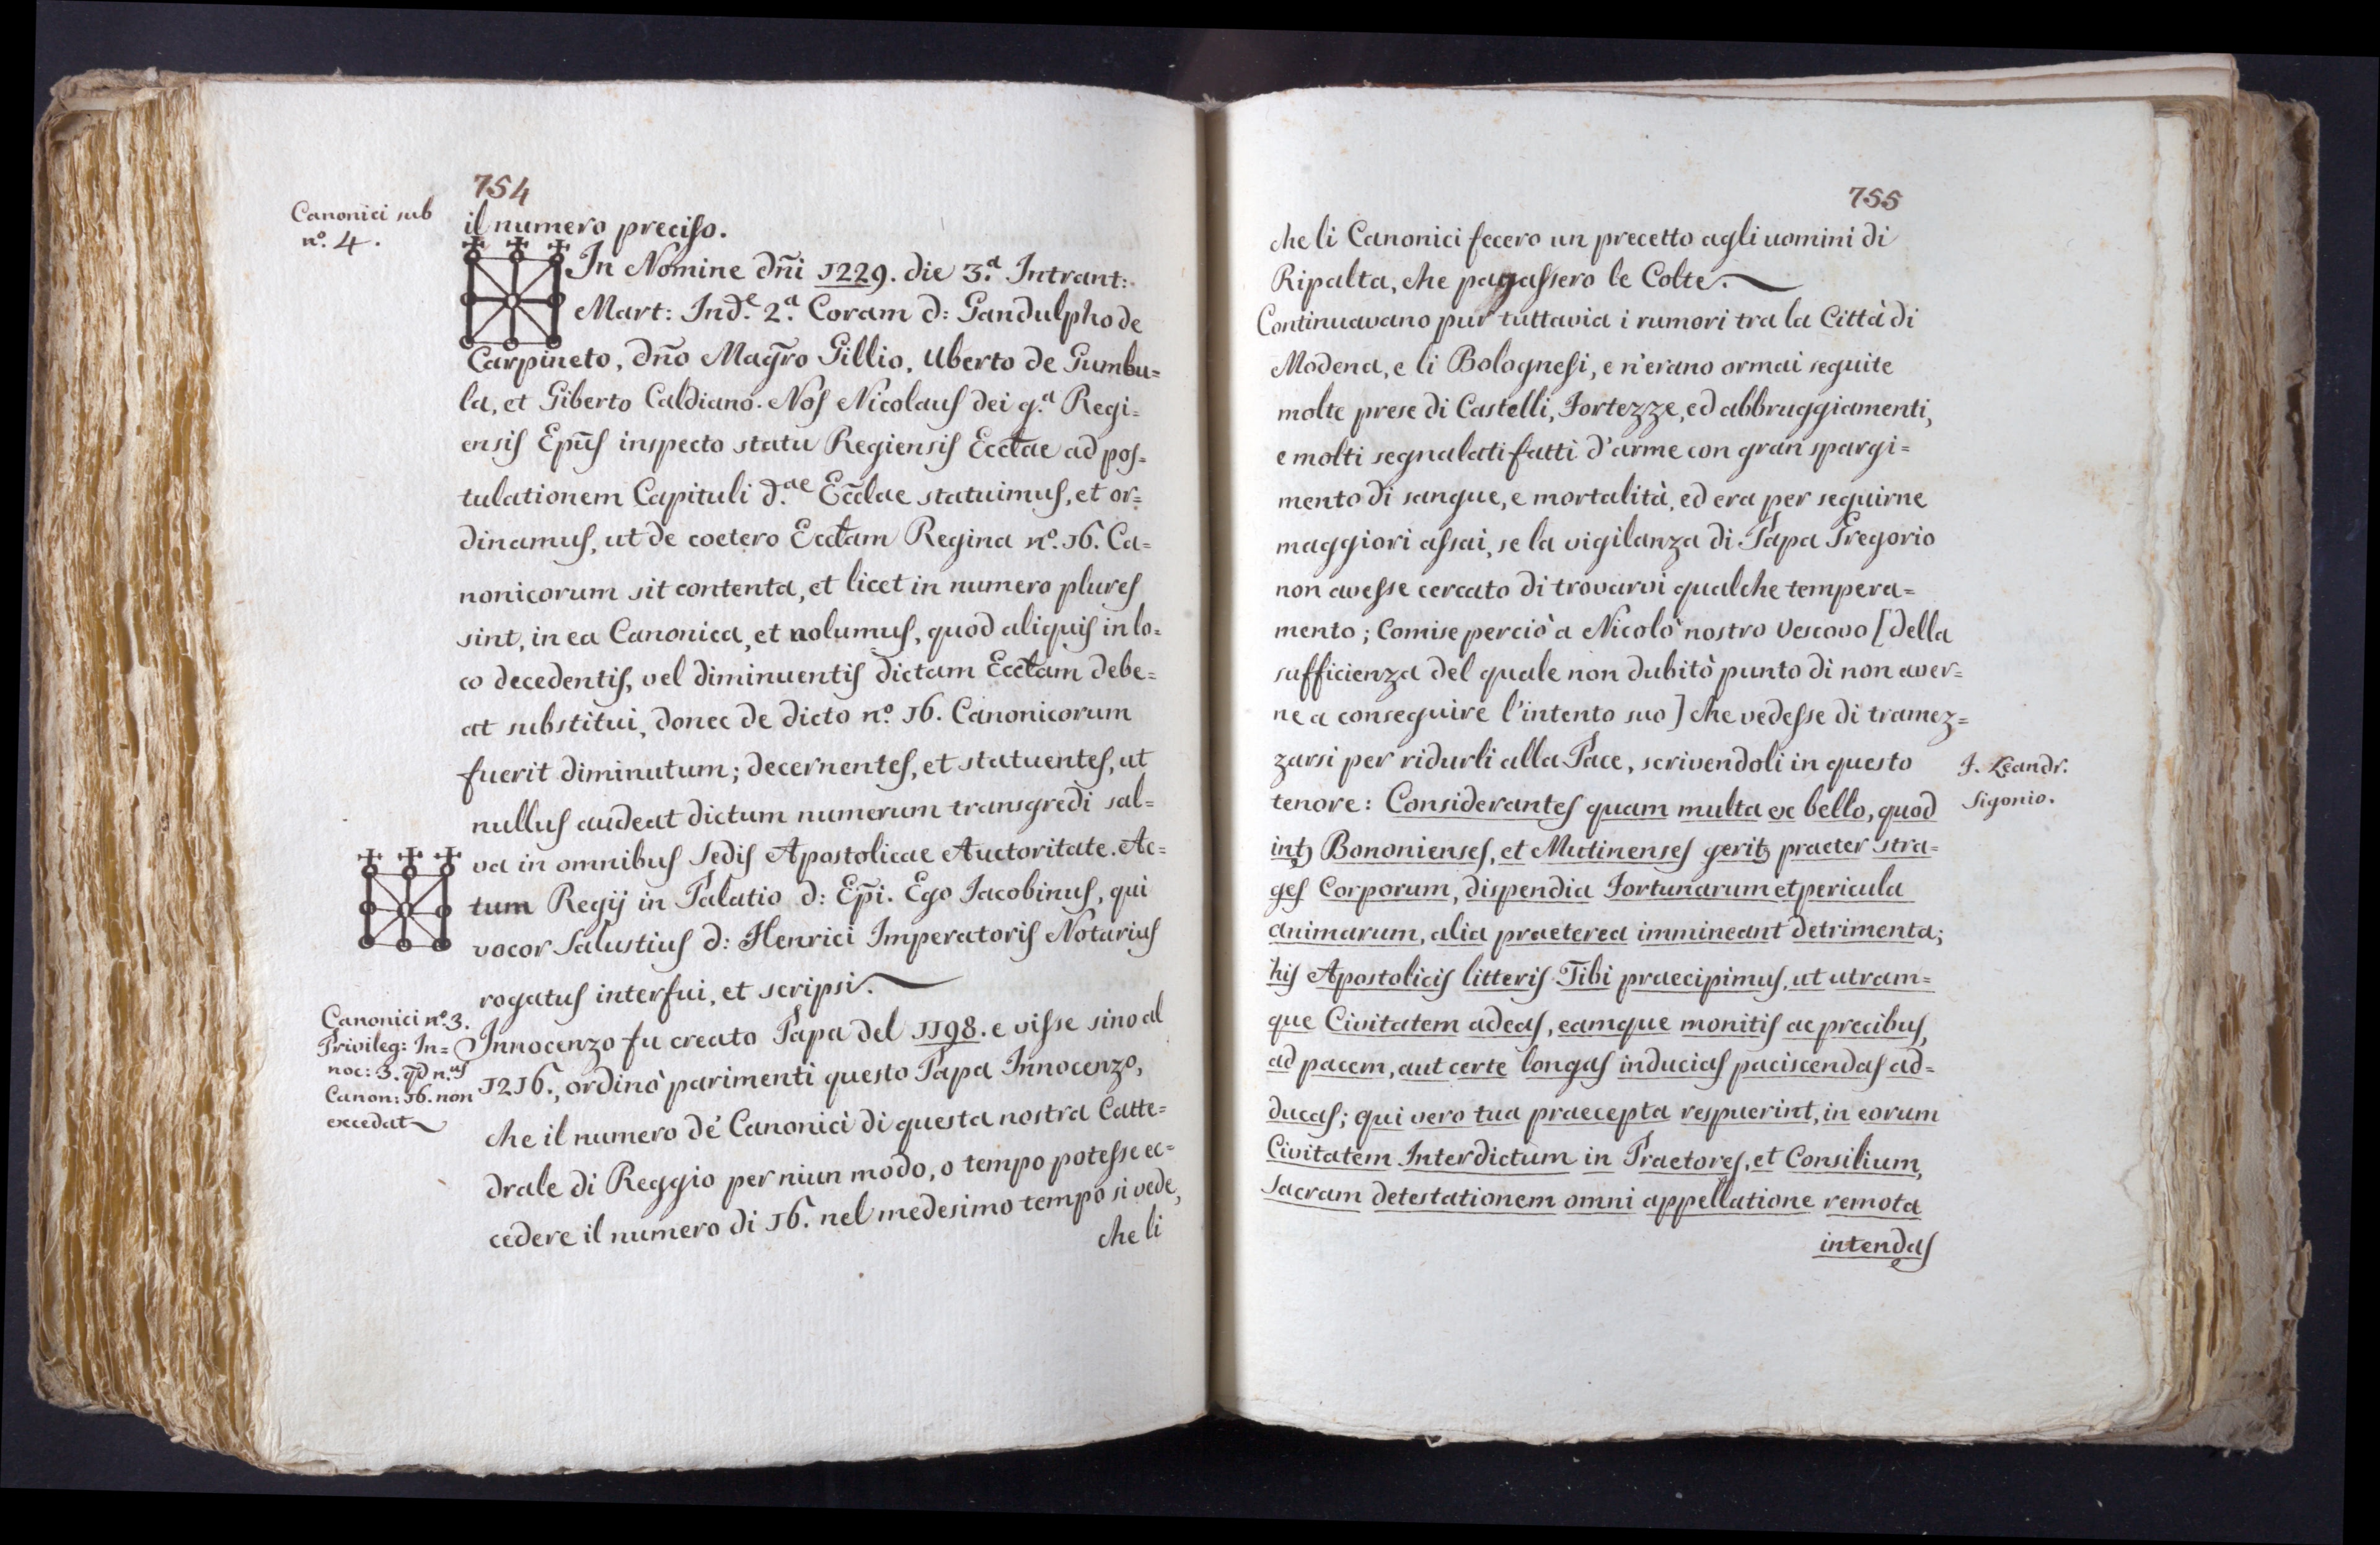 754
Canonici sub
nº. 4.
il numero preciso.
In Nomine dñi 1229. die 3.ª Intrant:
Mart: Ind.e 2.ª Coram d: Gandulpho de
Carpineto, dño Magr̃o Gillio, Uberto de Gumbu=
la, et Giberto Caldiano. Nos Nicolaus dei g.ª Regi=
ensis Epũs inspecto statu Regiensis Ecctae ad pos=
tulationem Capituli d.ae Ecc̃lae statuimus, et or=
dinamus, ut de coetero Ecctam Regina nº. 16. Ca=
nonicorum sit contenta, et licet in numero plures
sint, in ea Canonica, et nolumus, quod aliquis in lo=
co decedentis, vel diminuentis dictam Ecctam debe=
at substitui, donec de dicto nº. 16. Canonicorum
fuerit diminutum; decernentes, et statuentes, ut
nullus audeat dictum numerum transgredi sal=
va in omnibus Sedis Apostolicae Auctoritate. Ac=
tum Regij in Palatio d: Epĩ. Ego Iacobinus, qui
vocor Salustius d: Henrici Imperatoris Notarius
rogatus interfui, et scripsi.
Canonici nº. 3.
Privileg: In=
noc: 3. qd̃ n.us
Canon: 16. non
excedat
Innocenzo fu creato Papa del 1198. e visse sino al
1216., ordinò parimenti questo Papa Innocenzo,
che il numero de' Canonici di questa nostra Catte=
drale di Reggio per niun modo, o tempo potesse ec=
cedere il numero di 16. nel medesimo tempo si vede,
che li
755
che li Canonici fecero un precetto agli uomini di
Ripalta, che pagassero le Colte.
Continuavano pur tuttavia i rumori tra la Città di
Modena, e li Bolognesi, e n'erano ormai seguite
molte prese di Castelli, Fortezze, ed abbruggiamenti,
e molti segnalati fatti d'arme con gran spargi=
mento di sangue, e mortalità, ed era per seguirne
maggiori assai, se la vigilanza di Papa Gregorio
non avesse cercato di trovarvi qualche tempera=
mento; Comise perciò a Nicolò nostro Vescovo [della
sufficienza del quale non dubitò punto di non aver=
ne a conseguire l'intento suo] che vedesse di tramez=
zarsi per ridurli alla Pace, scrivendoli in questo
tenore: Considerantes quam multa ex bello, quod
F. Leandr.
Sigonio.
intꝫ Bononienses, et Mutinenses geritꝫ praeter stra=
ges Corporum, dispendia Fortunarum et pericula
animarum, alia praeterea immineant detrimenta;
his Apostolicis litteris Tibi praecipimus, ut utram=
que Civitatem adeas, eamque monitis ac precibus,
ad pacem, aut certe longas inducias paciscendas ad=
ducas; qui vero tua praecepta respuerint, in eorum
Civitatem Interdictum in Praetores, et Consilium,
sacram detestationem omni appellatione remota
intendas